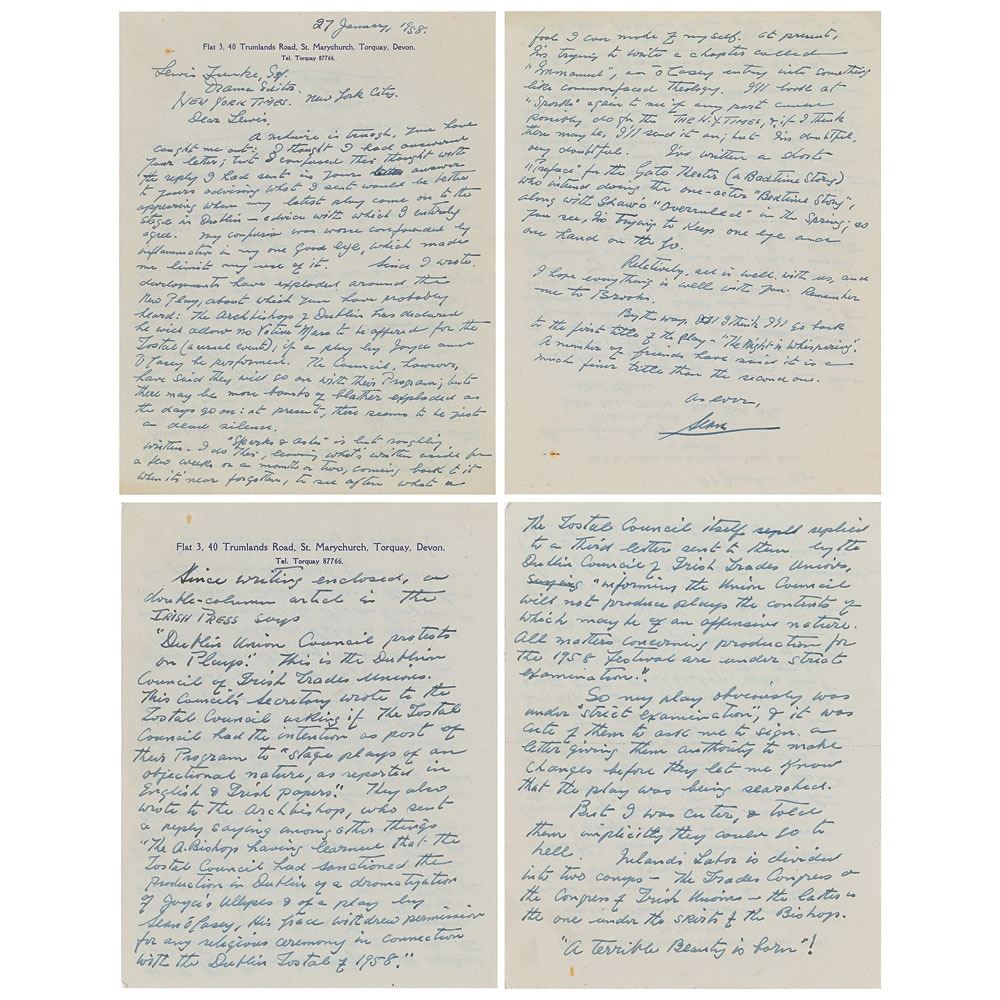 27 January, 1958.
Flat 3, 40 Trumlands Road, St. Marychurch, Torquay, Devon.
Tel. Torquay 87766.
Lewis Funke, Esq.
Drama Editor.
NEW YORK TIMES. New York City.
Dear Lewis,
A mixture is enough, you have
caught me out: I thought I had answered
your letter; but I confused this thought with
the reply I had sent in your answer
to yours advising what I sent would be better
appearing when my latest play came on to the
stage in Dublin — advice with which I entirely
agree. My confusion was worse confounded by
inflammation in my one good eye, which made
me limit my use of it. Since I wrote,
developments have exploded around the
New Play, about which you have probably
heard: The Archbishop of Dublin has declared
he will allow no Votive Mass to be offered for the
Tostal (a usual event), if a play by Joyce and
O'Casey be performed. The Council, however,
have said they will go on with their Program; but
there may be more bombs of blather exploded as
the days go on: at present, there seems to be just
a dead silence.
"Sparks & Ashes" is but roughly
written. I do this, leaving what's written aside for
a few weeks or a month or two, coming back to it
when it's near forgotten, to see after what a
fool I can make of myself. At present,
I'm trying to write a chapter called
"Immanuel", an O'Casey entry into something
like commonfaced theology. I'll look at
"Sparks" again to see if any part cd
possibly do for the THE N.Y. TIMES, & if I think
there may be, I'll send it on; but I'm doubtful,
very doubtful. I've written a short
Preface for the Gate Theater (a Bedtime Story)
who intend doing the one-acter "Bedtime Story",
along with Shaw's "Overruled" in the Spring; so
you see, I'm trying to keep one eye and
one hand on the Go.
Relatively, all is well with us, and
I hope everything is well with you. Remember
me to Brooks.
By the way, I think I'll go back
to the first title of the play — "The Night is Whispering".
A number of friends have said it is a
much finer title than the second one.
As ever,
Sean
Flat 3, 40 Trumlands Road, St. Marychurch, Torquay, Devon.
Tel. Torquay 87766.
Since writing enclosed, a
double-column article in the
IRISH PRESS says
"Dublin Union Council protests
on Plays". This is the Dublin
Council of Irish Trades Unions.
This Council's Secretary wrote to the
Tostal Council asking if The Tostal
Council had the intention as part of
their Program to "stage plays of an
objectional nature, as reported in
English & Irish papers." They also
wrote to the Archbishop, who sent
a reply saying amongst other things
"The A.Bishop having learned that the
Tostal Council had sanctioned the
Production in Dublin of a dramatization
of Joyce's Ulysses & of a play by
Sean O'Casey, His Grace withdrew permission
for any religious ceremony in connection
with the Dublin Tostal of 1958."
The Tostal Council itself replied
to a third letter sent to them by the
Dublin Council of Irish Trades Unions,
"informing the Union Council
will not produce plays the contents of
which may be of an offensive nature.
All matters concerning production for
the 1958 Festival are under strict
examination."
So my play obviously was
under "strict examination", & it was
cute of them to ask me to sign a
letter giving them authority to make
changes before they let me know
that the play was being searched.
But I was cuter, & told
them implicitly they could go to
hell. Ireland's Labor is divided
into two camps — The Trades Congress &
the Congress of Irish Unions — the latter is
the one under the skirts of the Bishops.
"A terrible Beauty is born"!